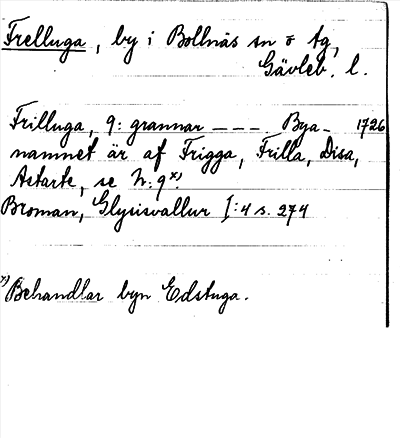 Frelluga, by i Bollnäs sn o tg,
Gävleb. l.
Frilluga, 9: grannar – – – . Bya- 1726
namnet är af Frigga, Frilla, Disa,
Astarte, se N:9 x).
Broman, Glysisvallur I:4 s. 274
x) Behandlar byn Edstuga.